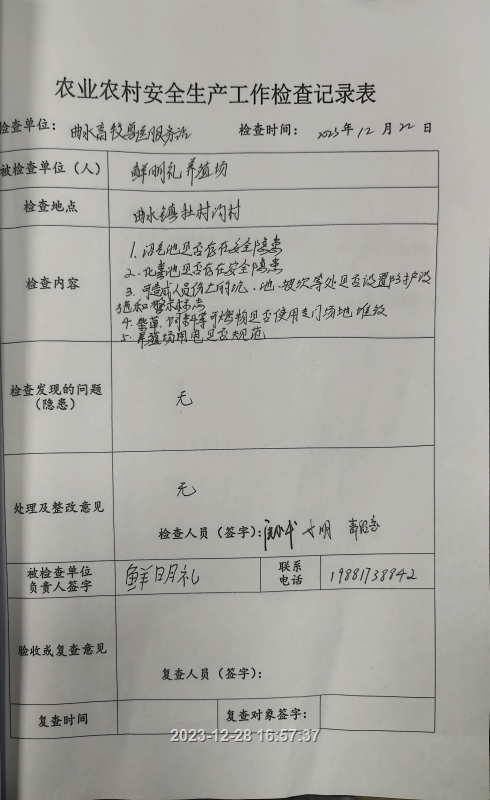 农业农村安全生产工作检查记录表
检查单位： 曲水畜牧兽医服务站 检查时间： 2023年 12 月 22 日
被检查单位（人） 鲜明礼养殖场
检查地点 曲水镇杜村沟村
检查内容
1. 沼气池是否存在安全隐患
2. 化粪池是否存在安全隐患
3. 可造成人员伤亡的坑、池、坡坎等处是否设置防护设
施和警示标志
4. 柴草、饲料等可燃物是否使用专门场地堆放
5. 养殖场用电是否规范
检查发现的问题
（隐患） 无
处理及整改意见 无
检查人员（签字）：
被检查单位
负责人签字 鲜明礼 联系
电话 19881738842
验收或复查意见
复查人员（签字）：
复查时间 复查对象签字：
2023-12-28 16:57:37